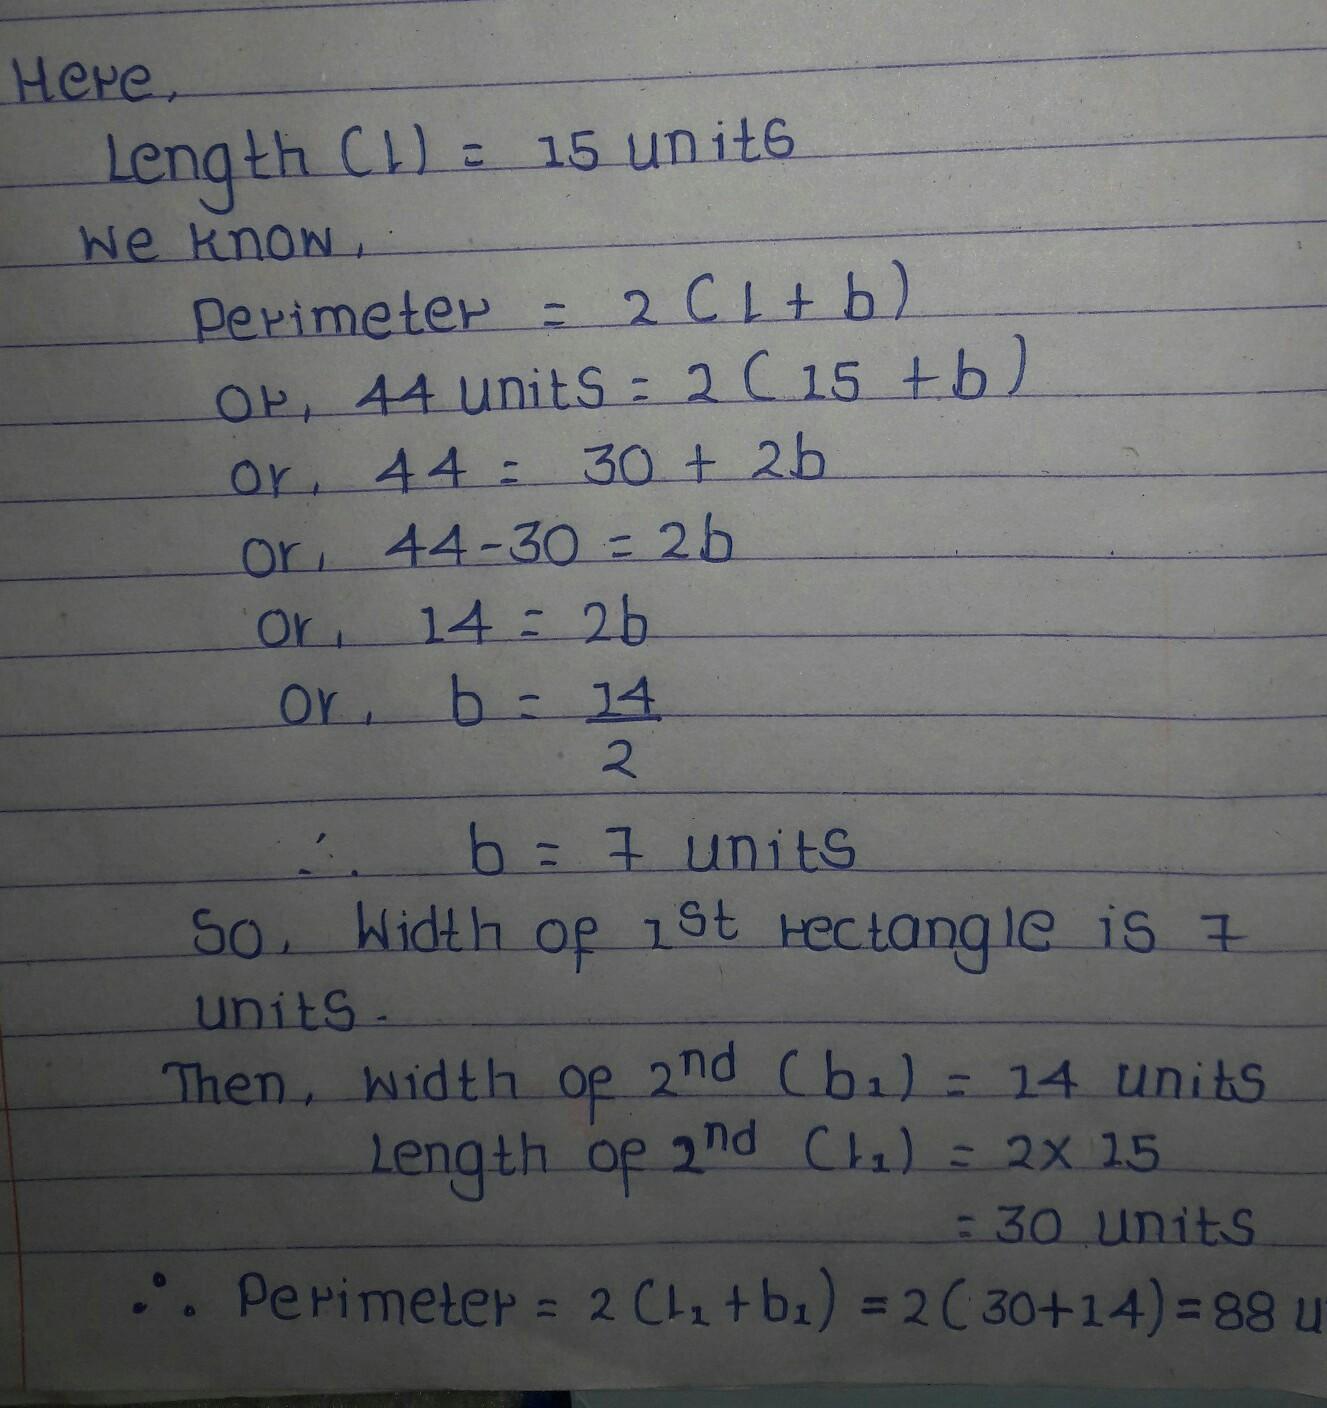 Here,
Length (l) = 15 units
We know,
Perimeter = 2 (l + b)
or, 44 units = 2 ( 15 + b )
or, 44 = 30 + 2b
or, 44-30 = 2b
or, 14 = 2b
or, b = 14
2
∴ b = 7 units
So, Width of 1st rectangle is 7
units.
Then, width of 2nd (b₁) = 14 units
Length of 2nd (l₁) = 2 x 15
= 30 units
∴ Perimeter = 2 (l₁ + b₁) = 2 ( 30+14) = 88 u